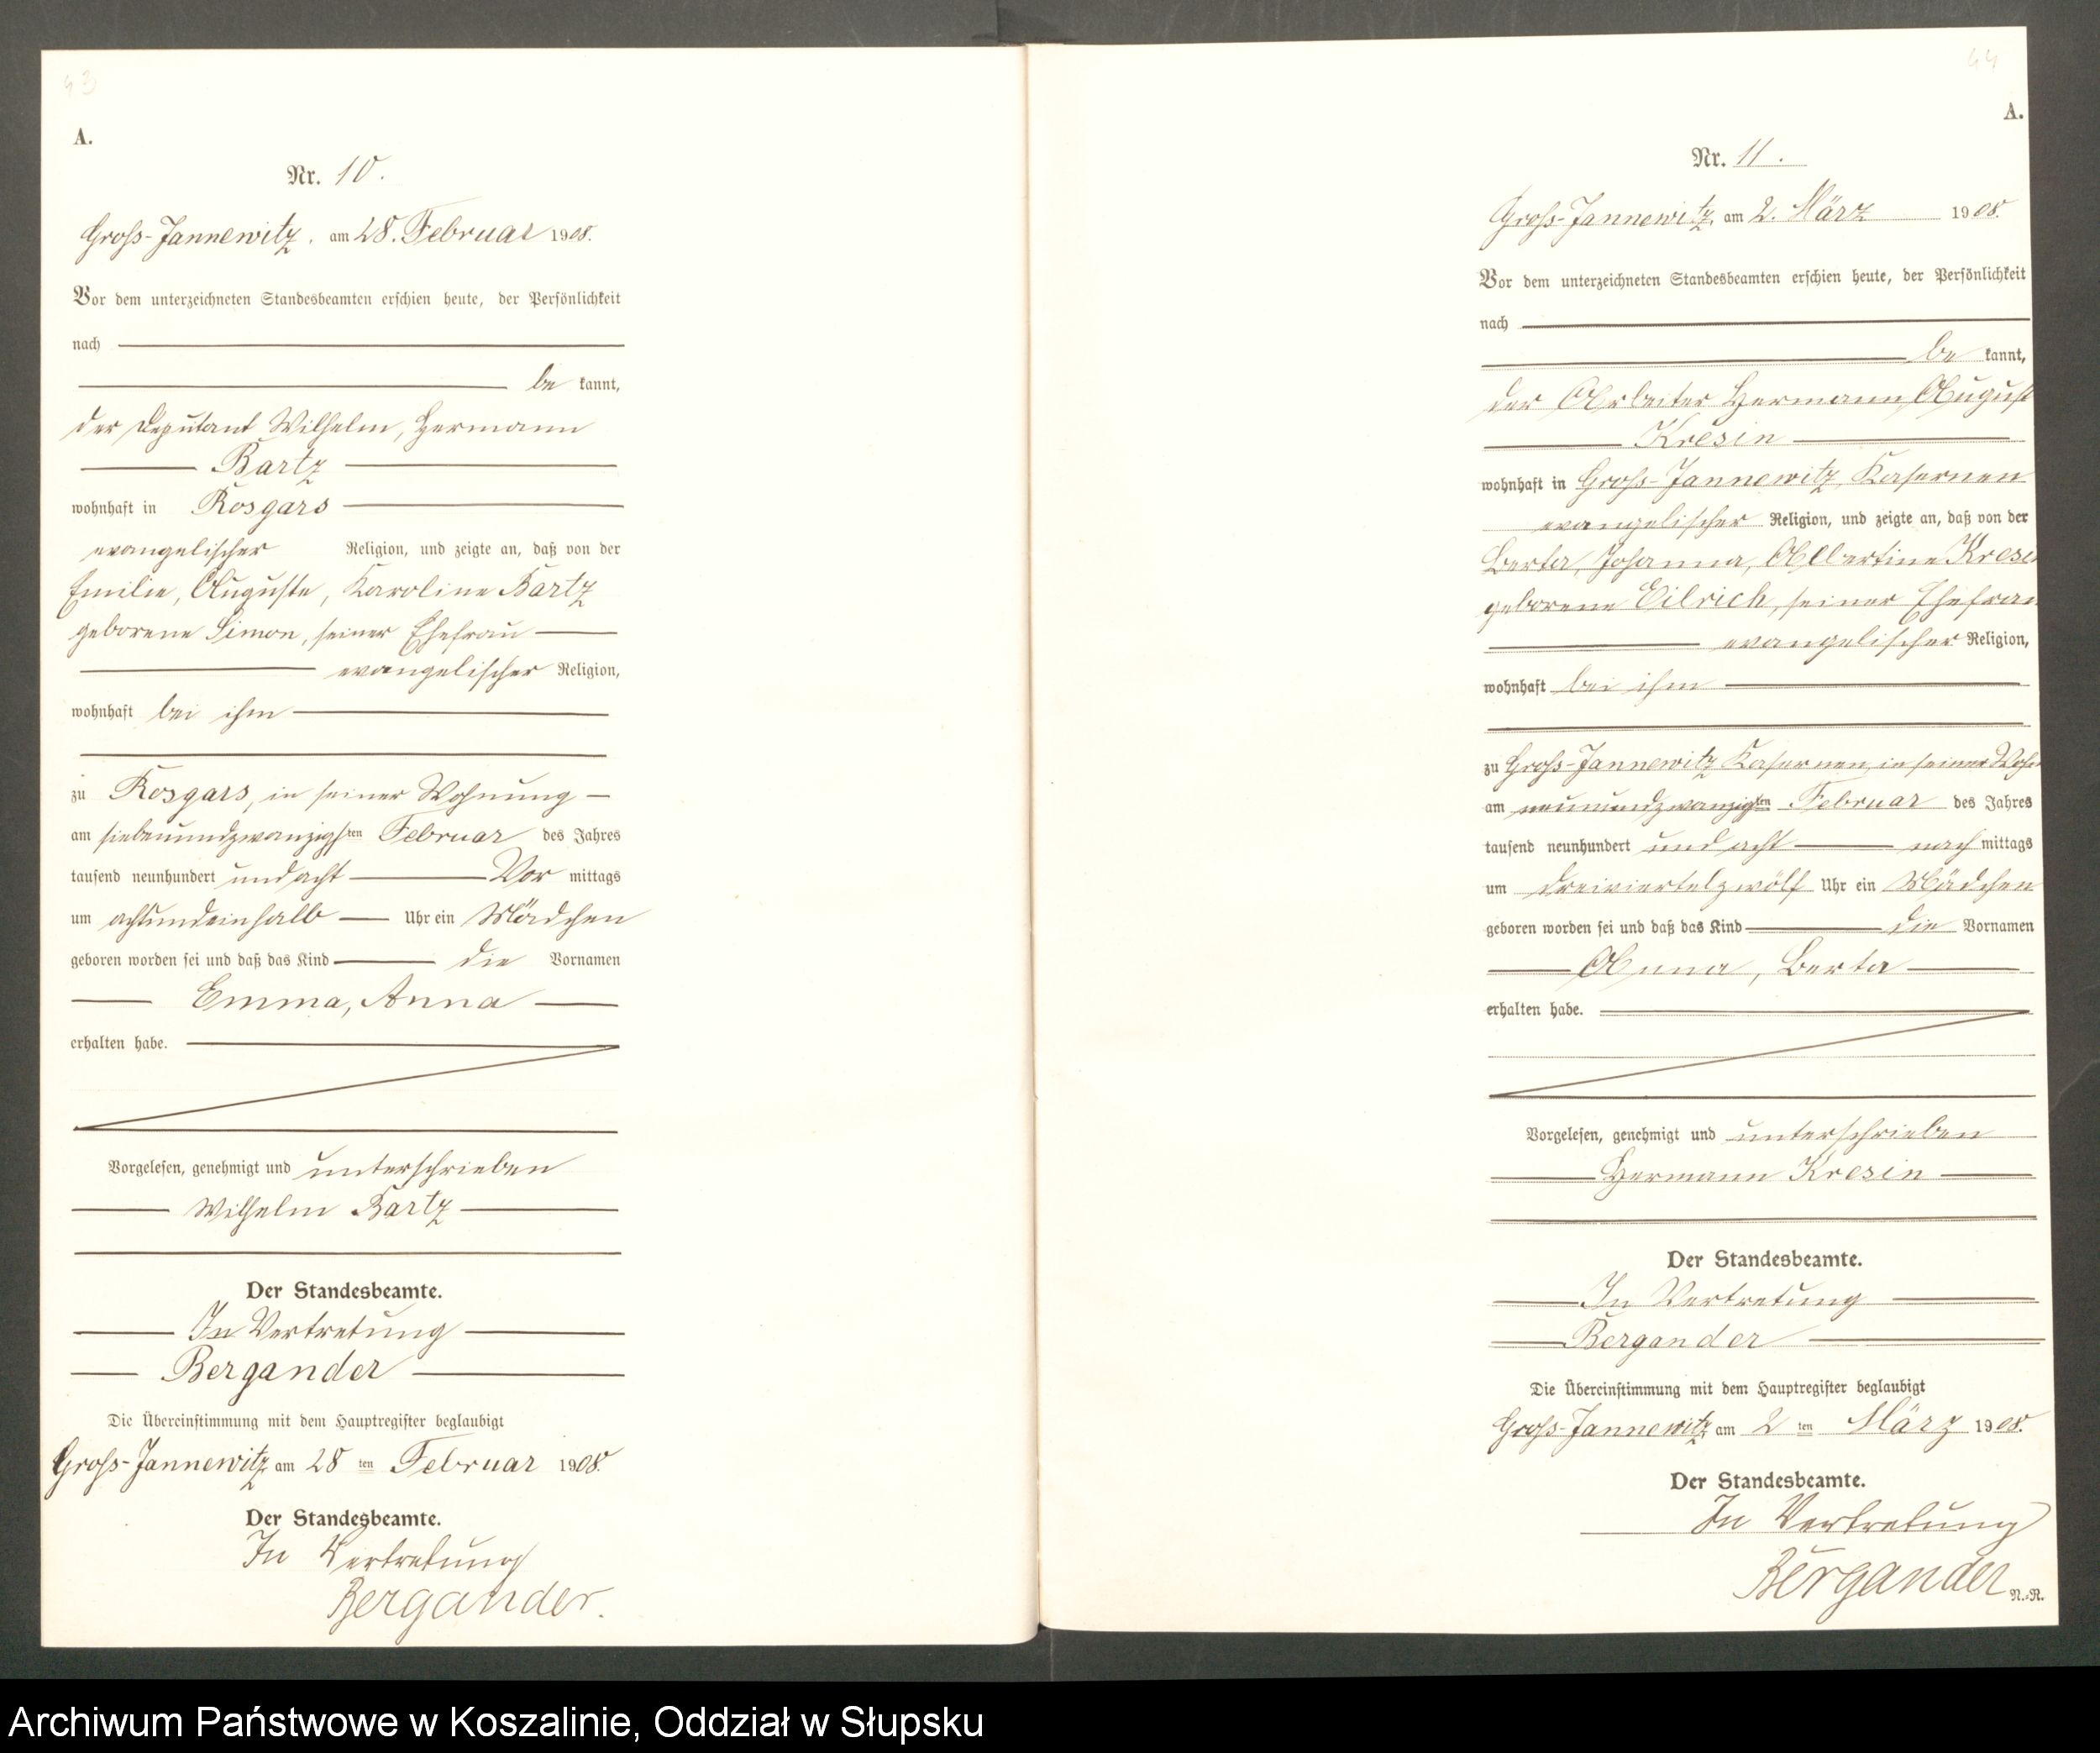 43
A.
Nr. 10.
Groß-Jannewitz, am 28. Februar 1908.
Vor dem unterzeichneten Standesbeamten erschien heute, der Persönlichkeit
nach
be kannt,
der Deputant Wilhelm, Hermann
Bartz
wohnhaft in Rosgars
evangelischer Religion, und zeigte an, daß von der
Emilie, Auguste, Karoline Bartz
geborene Simon, seiner Ehefrau
evangelischer Religion,
wohnhaft bei ihm
zu Rosgars, in seiner Wohnung
am siebenundzwanzigsten Februar des Jahres
tausend neunhundert und acht Vor mittags
um achtundeinhalb Uhr ein Mädchen
geboren worden sei und daß das Kind die Vornamen
Emma, Anna
erhalten habe.
Vorgelesen, genehmigt und unterschrieben
Wilhelm Bartz
Der Standesbeamte.
In Vertretung
Bergander
Die Übereinstimmung mit dem Hauptregister beglaubigt
Groß-Jannewitz am 28 ten Februar 1908.
Der Standesbeamte.
In Vertretung
Bergander.
44
A.
Nr. 11.
Groß-Jannewitz, am 2. März 1908.
Vor dem unterzeichneten Standesbeamten erschien heute, der Persönlichkeit
nach
be kannt,
der Arbeiter Hermann, August
Kresin
wohnhaft in Groß-Jannewitz, Kasernen
evangelischer Religion, und zeigte an, daß von der
Berta, Johanna, Albertine Kresin
geborene Eilrich, seiner Ehefrau
evangelischer Religion,
wohnhaft bei ihm
zu Groß-Jannewitz Kasernen, in seiner Wohn
am neunundzwanzigsten Februar des Jahres
tausend neunhundert und acht nach mittags
um dreiviertelzwölf Uhr ein Mädchen
geboren worden sei und daß das Kind die Vornamen
Anna, Berta
erhalten habe.
Vorgelesen, genehmigt und unterschrieben
Hermann Kresin
Der Standesbeamte.
In Vertretung
Bergander
Die Übereinstimmung mit dem Hauptregister beglaubigt
Groß-Jannewitz, am 2 ten März 1908.
Der Standesbeamte.
In Vertretung
Bergander
N.-R.
Archiwum Państwowe w Koszalinie, Oddział w Słupsku